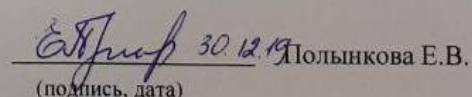 30.12.19 Полынкова Е.В.
(подпись, дата)